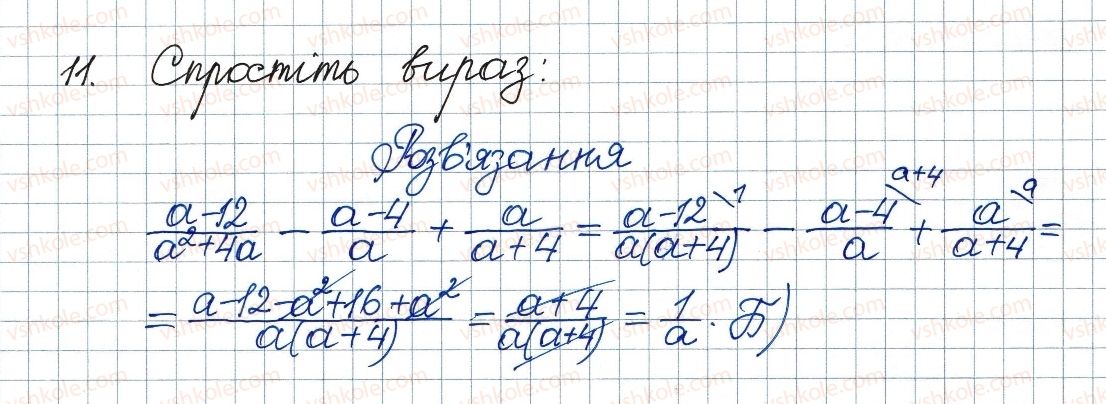 11. Спростіть вираз:
Розв'язання
\frac{a-12}{a^2+4a} - \frac{a-4}{a} + \frac{a}{a+4} = \frac{a-12^{\backslash 1}}{a(a+4)} - \frac{a-4^{\backslash a+4}}{a} + \frac{a^{\backslash a}}{a+4} =
= \frac{a-12-a^2+16+a^2}{a(a+4)} = \frac{a+4}{a(a+4)} = \frac{1}{a}. Б)